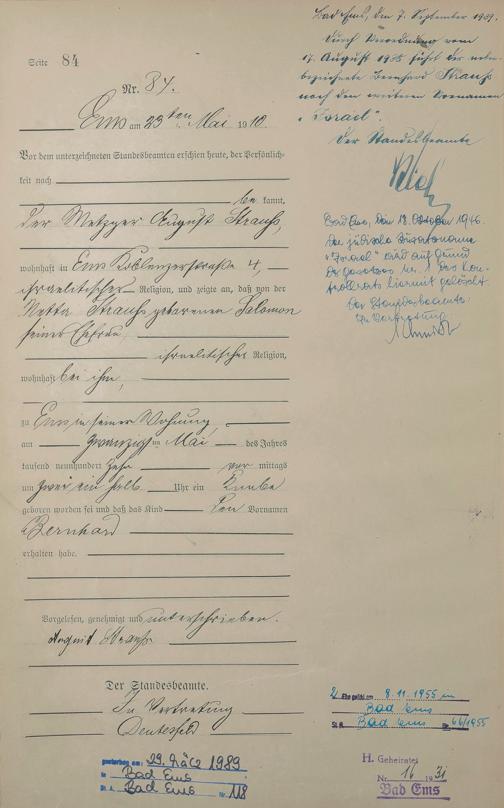 Seite 84
Nr. 84.
Ems am 23ten Mai 1910.
Vor dem unterzeichneten Standesbeamten erschien heute, der Persönlich-
keit nach
be kannt,
der Metzger August Strauss,
wohnhaft in Ems Koblenzerstraße 4,
israelitischer Religion, und zeigte an, daß von der
Netta Strauss geborenen Salomon
seiner Ehefrau
israelitischer Religion,
wohnhaft bei ihm,
zu Ems in seiner Wohnung,
am zwanzigsten Mai des Jahres
tausend neunhundert zehn vor mittags
um zwei ein halb Uhr ein Knabe
geboren worden sei und daß das Kind den Vornamen
Bernhard
erhalten habe.
Vorgelesen, genehmigt und unterschrieben.
August Strauss
Der Standesbeamte.
In Vertretung
gestorben am 29. März 1989
in Bad Ems
St. A. Bad Ems Nr. 118
Bad Ems, den 7. September 1939.
Durch Verordnung vom
17. August 1938 führt der neben-
bezeichnete Bernhard Strauss
noch den weiteren Vornamen
"Israel".
Der Standesbeamte
Bad Ems, den 18. Oktober 1946.
Der jüdische Zusatzname
"Israel" wird auf Grund
des Gesetzes Nr. 1 des Kon-
trollrats hiermit gelöscht.
Der Standesbeamte
In Vertretung
2. Ehe geschl. am 8.11.1955 in
Bad Ems
St. A. Bad Ems Nr. 66/1955
H. Geheiratet
Nr. 16 1931
Bad Ems